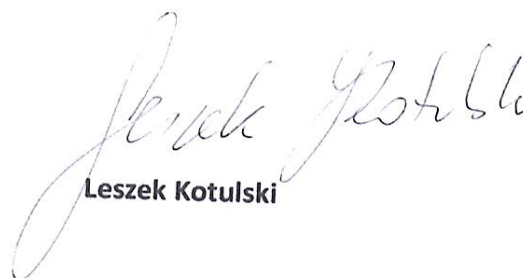 Leszek Kotulski
Leszek Kotulski